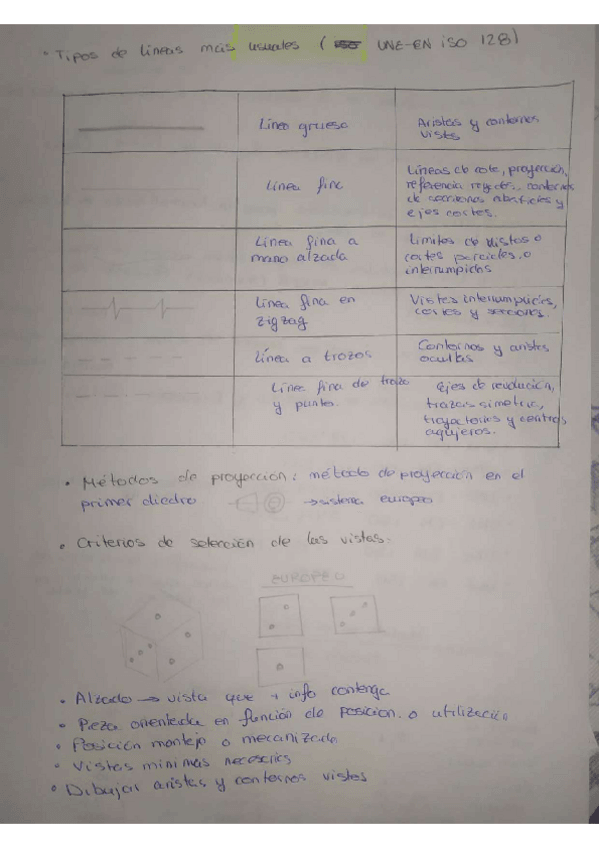 • Tipos de líneas más usuales ( UNE-EN iso 128)
Línea gruesa
Aristas y contornos
vistos
Línea fina
Líneas de cota, proyección,
referencia contornos
de secciones abatidas y
ejes cortos.
Línea fina a
mano alzada
Límites de vistas o
cortes parciales, o
interrumpidos
Línea fina en
zigzag
Vistas interrumpidas,
cortes y secciones.
Línea a trazos
Contornos y aristas
ocultas
Línea fina de trazo
y punto.
Ejes de revolución,
trazas simetría,
trayectorias y centros
agujeros.
• Métodos de proyección: método de proyección en el
primer diedro → sistema europeo
• Criterios de selección de las vistas:
EUROPEO
• Alzado → vista que + info contenga
• Pieza orientada en función de posición o utilización
• Posición montaje o mecanizado
• Vistas mínimas necesarias
• Dibujar aristas y contornos vistos